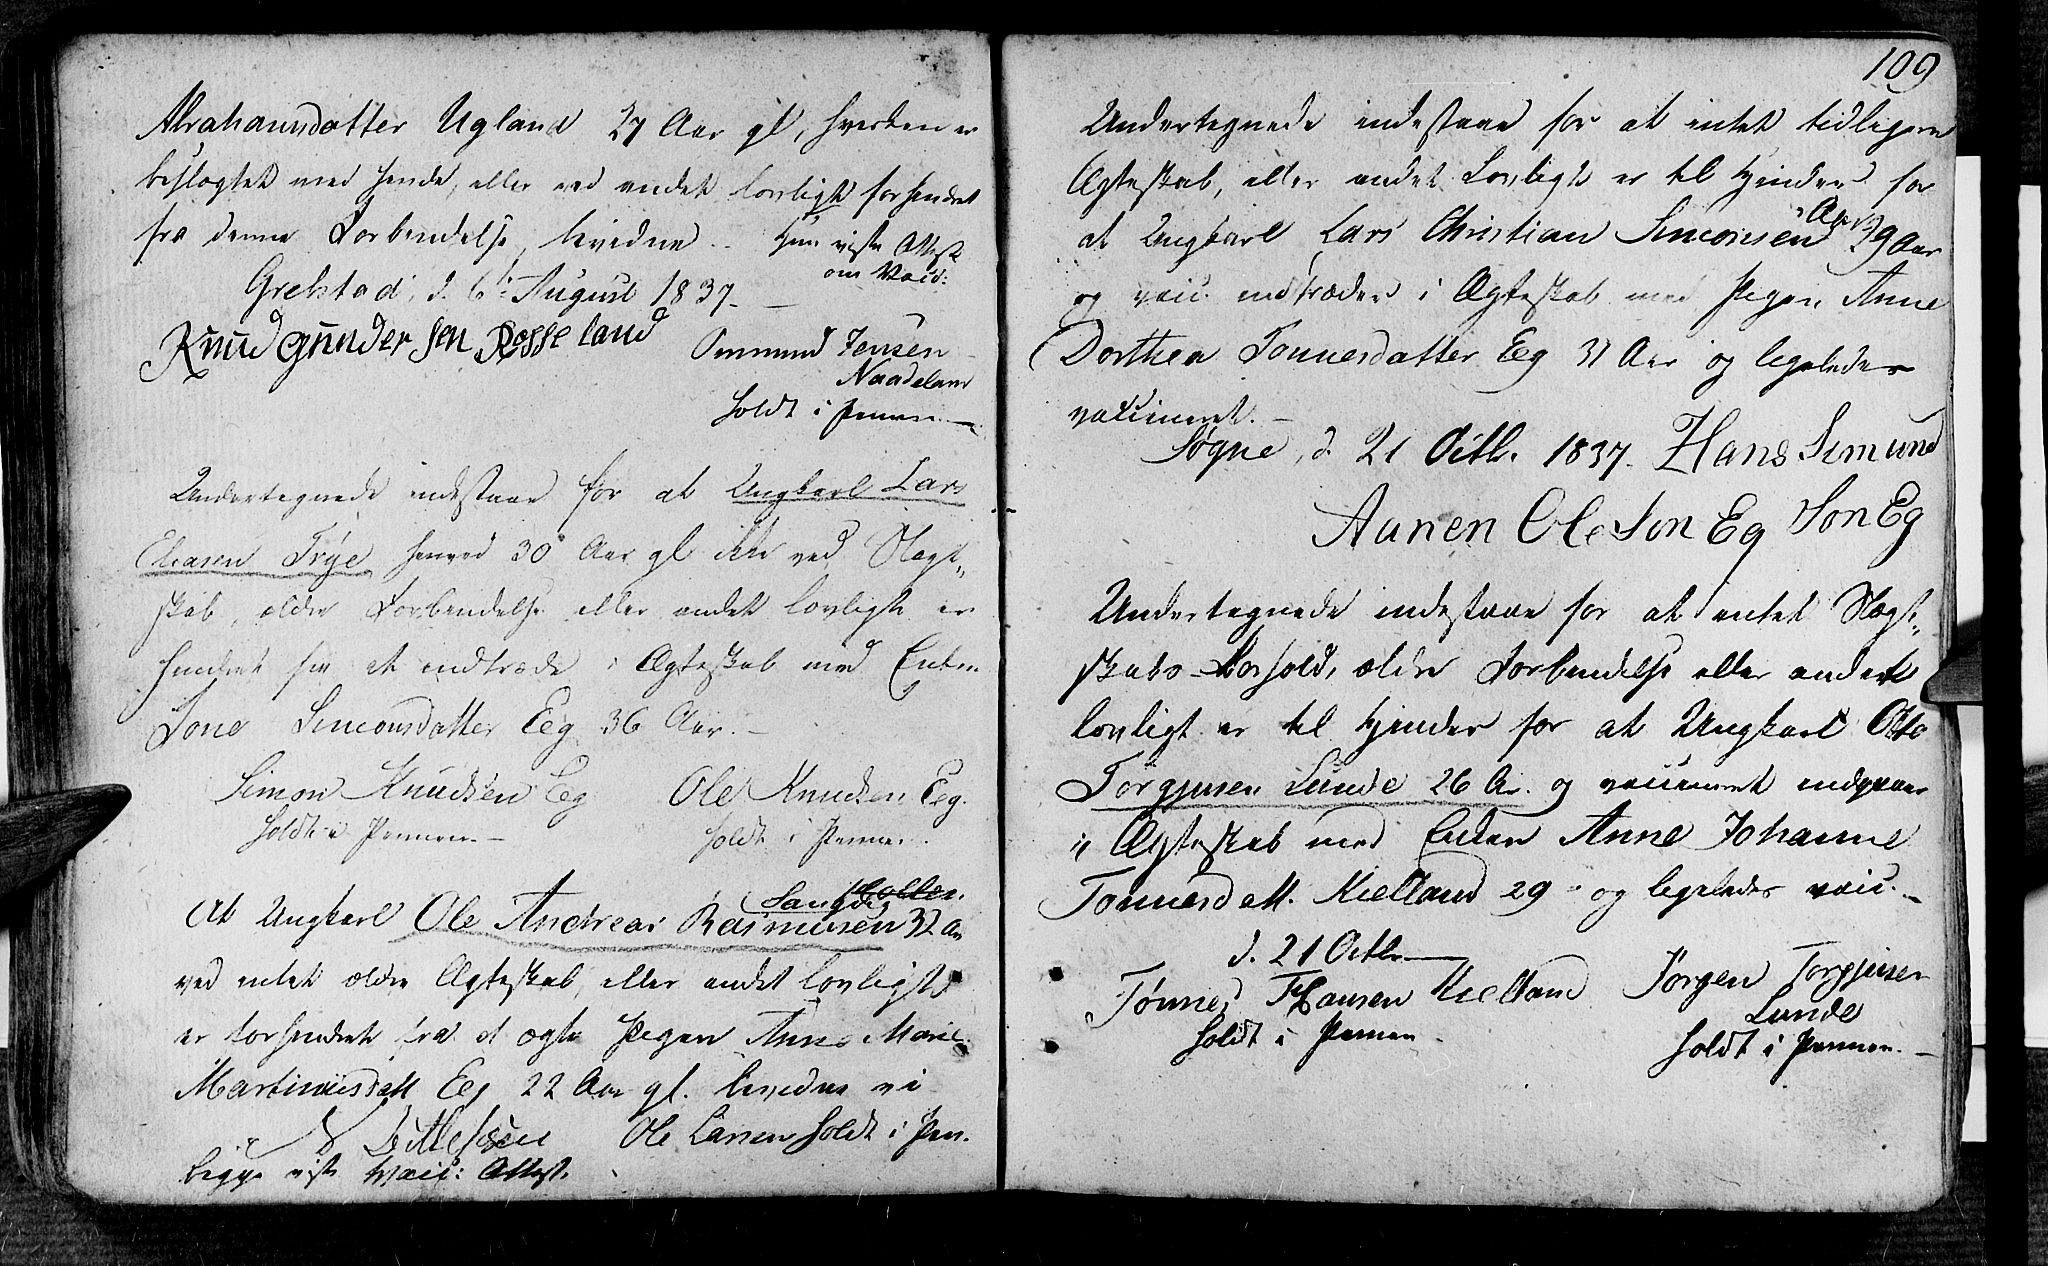 Abrahamsdatter Ugland 27 Aar gl, hverken er
beslægtet med hende, eller ved andet lovligt forhindret
fra denne Forbindelse, bevidne. Hun viste Attest
om Vacc:
Grekstad, d. 6te August 1837.
Knud gunder sen Rosseland Ommund Jensen
Naadeland
holdt i Pennen
Undertegnede indestaae for at Ungkarl Lars
Eliasen Trye henved 30 Aar gl ikke ved Slægt-
skab, ældre Forbindelse eller andet lovligt er
hindret fra at indtræde i Ægteskab med Enken
Tone Simonsdatter Eeg 36 Aar.
Simon Knudsen Eg Ole Knudsen Eeg.
holdt i Pennen holdt i Pennen.
At Ungkarl Ole Andreas Rasmussen 32 Aar
ved intet ældre Ægteskab, eller andet lovligt
er forhindret fra at ægte Pigen Anne Marie
Martiniusdatt Eeg 22 Aar gl. bevidne vi
D Ditlefsen Ole Larsen holdt i Pen.
begge viste Vacc: Attest.
109
Undertegnede indestaae for at intet tidligere
Ægteskab, eller andet Lovligt er til Hinder for
at Ungkarl Lars Christian Simonsen 29 Aar
og vacc. indtræder i Ægteskab med Pigen Anne
Dorthea Tønnesdatter Eeg 31 Aar og ligeledes
vaccineret.
Søgne, d. 21 Octbr. 1837. Hans Simund
Aanen Ole Son Eg Son Eg
Undertegnede indestaae for at intet Slægt-
skabs-Forhold, ældre Forbindelse eller andet
lovligt er til Hinder for at Ungkarl Otto
Torgjusen Lunde 26 Ar. og vaccineret indgaaer
i Ægteskab med Enken Anne Johanne
Tønnesdatt. Kielland 29 og ligeledes vacc.
d. 21 Octbr
Tønnes Hansen Kielland Jørgen Torgjusen
Lunde
holdt i Pennen holdt i Pennen.